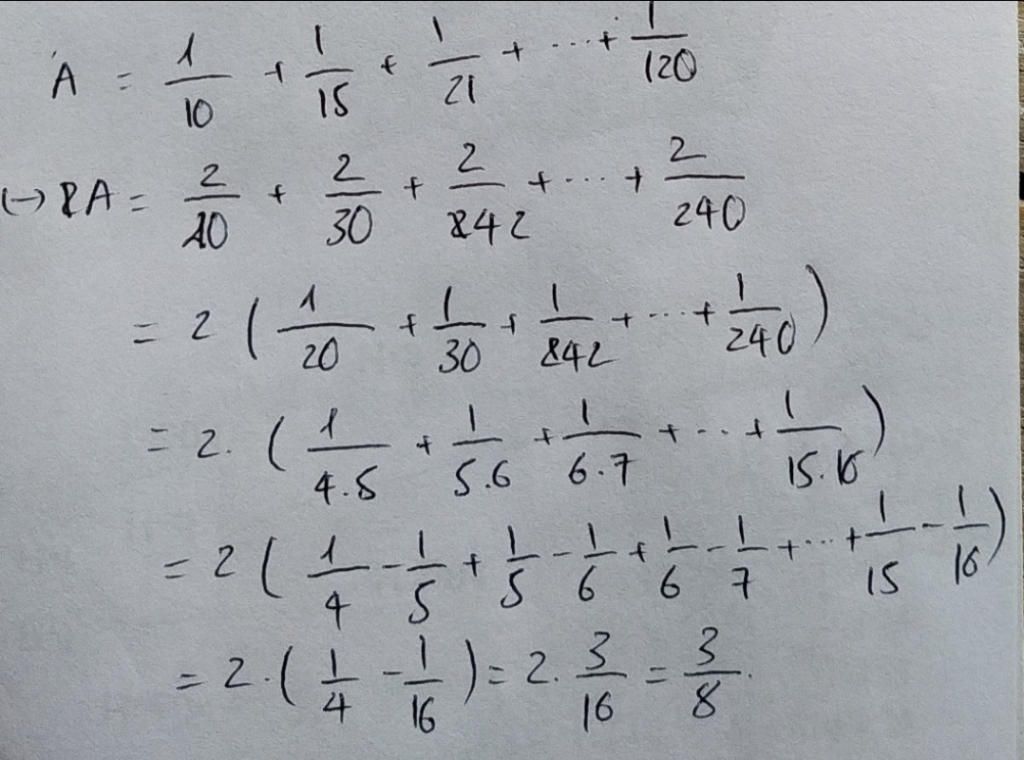 A = 1/10 + 1/15 + 1/21 + ... + 1/120
(-) 2A = 2/20 + 2/30 + 2/42 + ... + 2/240
= 2 ( 1/20 + 1/30 + 1/42 + ... + 1/240 )
= 2. ( 1/4.5 + 1/5.6 + 1/6.7 + ... + 1/15.16 )
= 2 ( 1/4 - 1/5 + 1/5 - 1/6 + 1/6 - 1/7 + ... + 1/15 - 1/16 )
= 2. ( 1/4 - 1/16 ) = 2. 3/16 = 3/8.